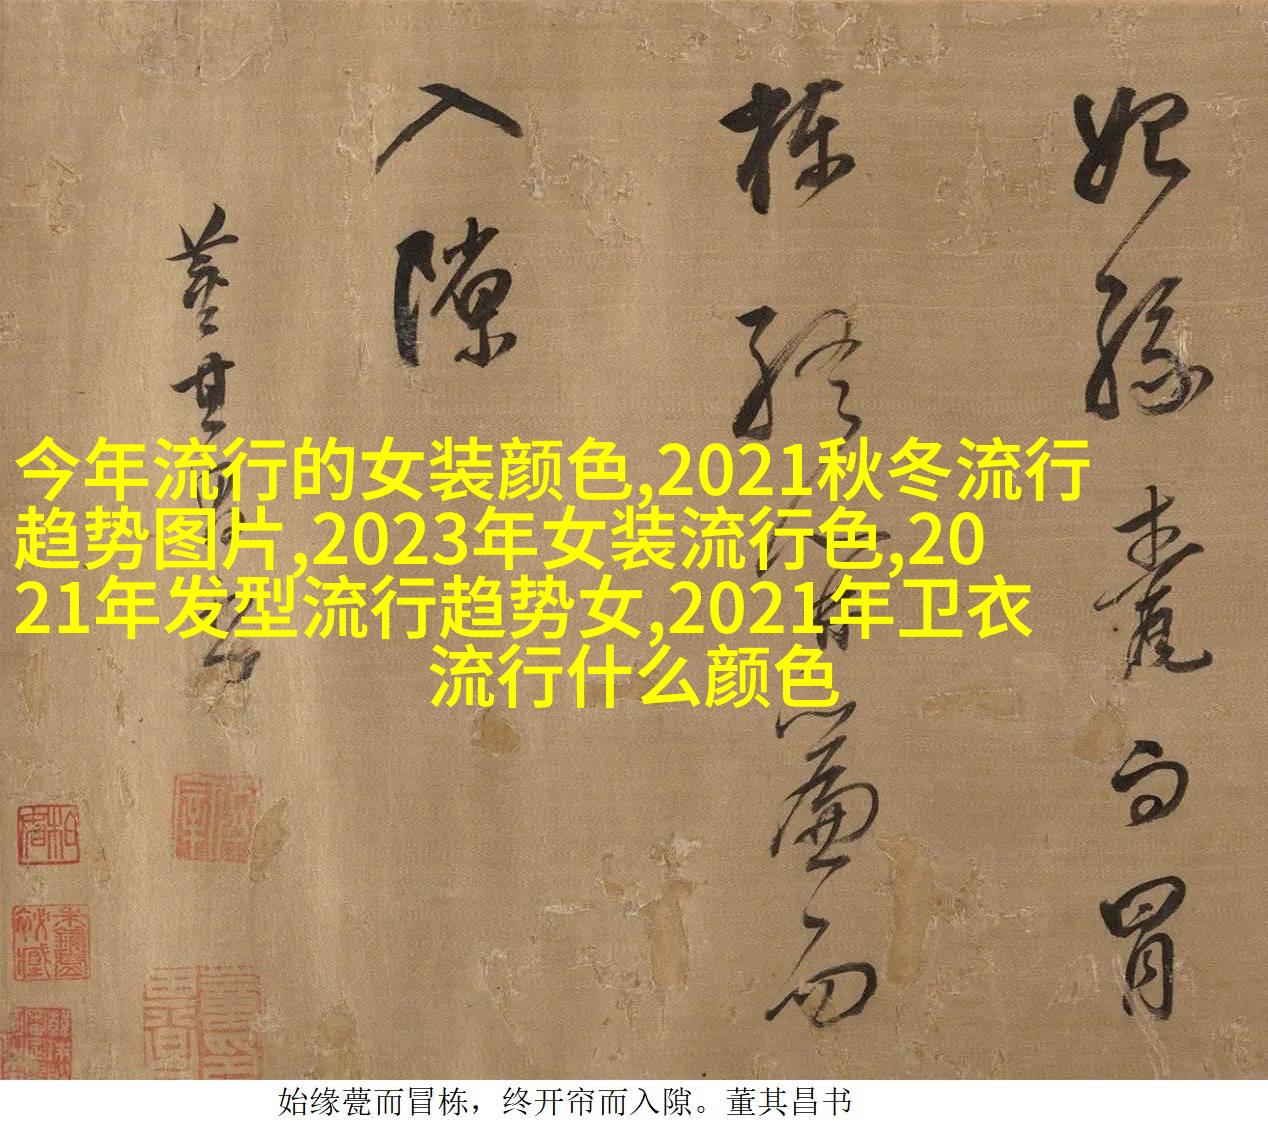 始缘甍而冒
栋终开簾而
入隙
董其昌书
今年流行的女装颜色,2021秋冬流行
趋势图片,2023年女装流行色,20
21年发型流行趋势女,2021年卫衣
流行什么颜色
始缘甍而冒栋，终开帘而入隙。董其昌书